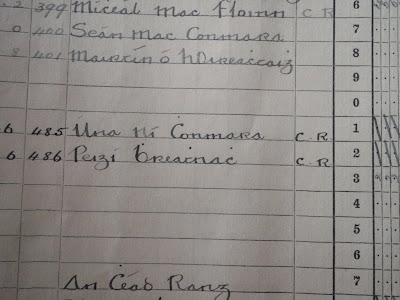 2 399 Micéal Mac Floinn C R 6
0 400 Seán Mac Conmara 7
8 401 Mairtín Ó hOireactaig 8
9
0
6 485 Úna Ní Conmara C.R. 1
6 486 Peigí Breatnac C.R 2
3
4
5
6
An Céad Rang 7